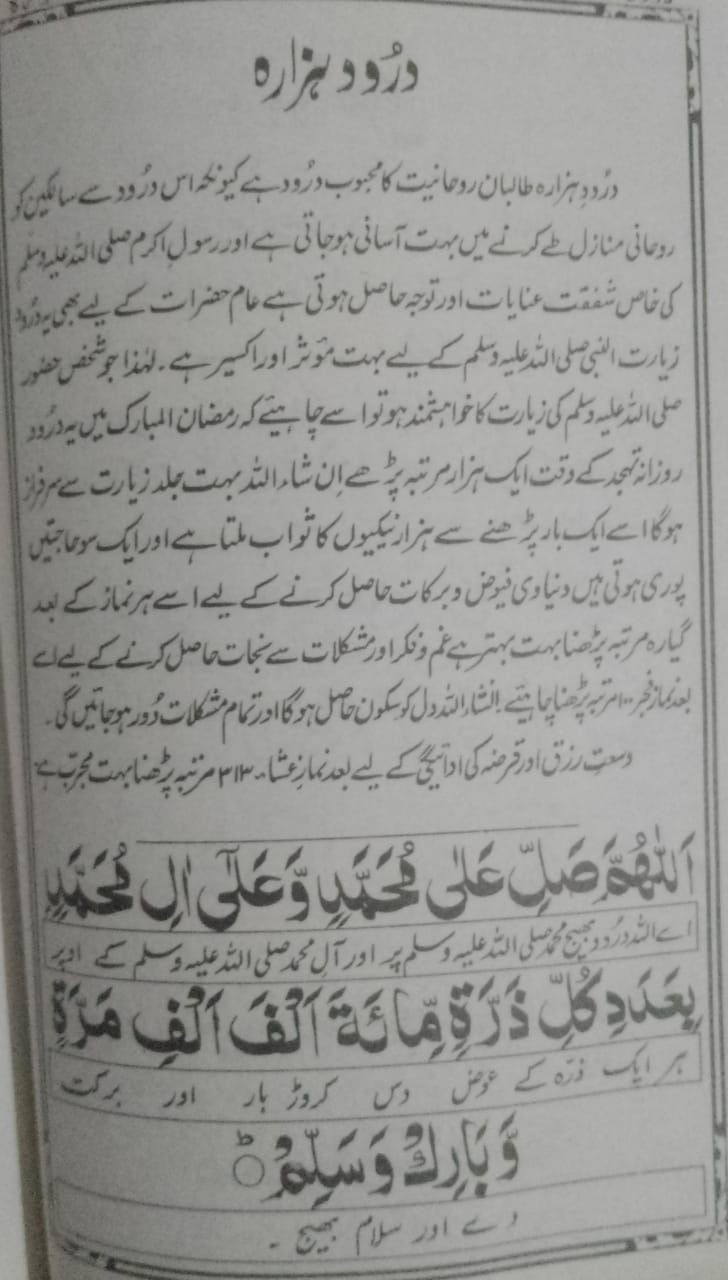 درُود ہزارہ
درُودِ ہزارہ طالبان روحانیت کا محبوب درُود ہے کیونکہ اس درُود سے سالکین کو
روحانی منازل طے کرنے میں بہت آسانی ہو جاتی ہے اور رسولِ اکرم صلی اللہ علیہ وسلم
کی خاص شفقت عنایات اور توجہ حاصل ہوتی ہے عام حضرات کے لیے بھی یہ درُود
زیارت النبی صلی اللہ علیہ وسلم کے لیے بہت مؤثر اور اکسیر ہے۔ لہٰذا جو شخص حضور
صلی اللہ علیہ وسلم کی زیارت کا خواہشمند ہو تو اسے چاہیئے کہ رمضان المبارک میں یہ درُود
روزانہ تہجد کے وقت ایک ہزار مرتبہ پڑھے اِن شاء اللہ بہت جلد زیارت سے سرفراز
ہوگا اسے ایک بار پڑھنے سے ہزار نیکیوں کا ثواب ملتا ہے اور ایک سو حاجتیں
پوری ہوتی ہیں دنیاوی فیوض و برکات حاصل کرنے کے لیے اسے ہر نماز کے بعد
گیارہ مرتبہ پڑھنا بہت بہتر ہے غم و فکر اور مشکلات سے نجات حاصل کرنے کے لیے اسے
بعد نماز فجر ۱۰۰ مرتبہ پڑھنا چاہیئے انشاء اللہ دل کو سکون حاصل ہوگا اور تمام مشکلات دُور ہو جائیں گی۔
وسعتِ رزق اور قرضہ کی ادائیگی کے لیے بعد نمازِ عشاء ۳۱۳ مرتبہ پڑھنا بہت مجرب ہے۔
اَللّٰهُمَّ صَلِّ عَلٰى مُحَمَّدٍ وَّعَلٰٓى اٰلِ مُحَمَّدٍ
اے اللہ درُود بھیج محمد صلی اللہ علیہ وسلم پر اور آلِ محمد صلی اللہ علیہ وسلم کے اوپر
بِعَدَدِ كُلِّ ذَرَّةٍ مِّائَةَ اَلْفَ اَلْفِ مَرَّةٍ
ہر ایک ذرّہ کے عوض دس کروڑ بار اور برکت
وَّبَارِكْ وَسَلِّمْ ○ؕ
دے اور سلام بھیج ۔